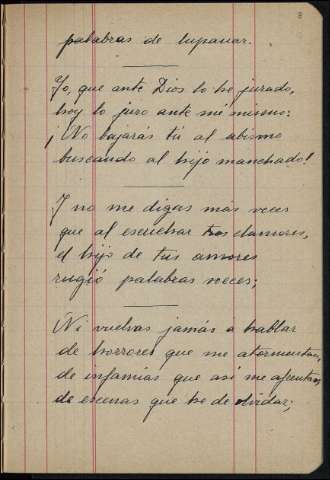 8
palabras de lupanar.
Yo, que ante Dios lo he jurado,
hoy lo juro ante mí mismo:
¡No bajarás tú al abismo
buscando al hijo manchado!
Y no me digas más veces
que al escuchar tus clamores,
el hijo de tus amores
rugió palabras soeces;
Ni vuelvas jamás a hablar
de horrores que me atormentan,
de infamias que así me afrentan,
de escenas que he de olvidar;